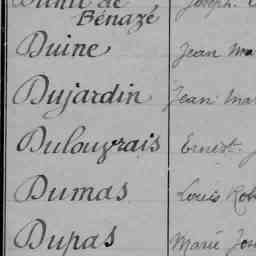 de Joseph.
Bénazé
Duine Jean Ma
Dujardin Jean Mar
Dulouvrais Ernest.
Dumas Louis Rob
Dupas Marie Jos